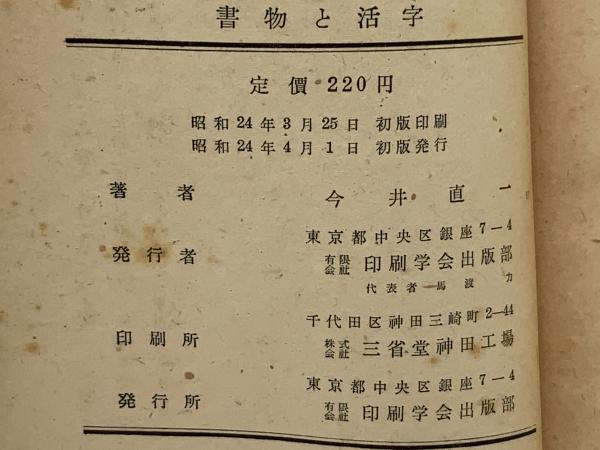 書物と活字
定價 220円
昭和24年3月25日 初版印刷
昭和24年4月1日 初版発行
著者 今井直一
東京都中央区銀座7—4
発行者 有限会社 印刷学会出版部
代表者 馬渡力
千代田区神田三崎町2—44
印刷所 株式会社 三省堂神田工場
東京都中央区銀座7—4
発行所 有限会社 印刷学会出版部